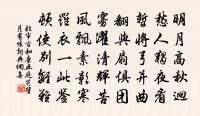 明月高秋迥
愁人獨夜看
暫將弓並曲
翻與扇俱團
霧濯清輝苦
風飄素影寒
羅衣一此鑒
頓使別離難
杜審言和康五庭芝望
月有懷詞典網